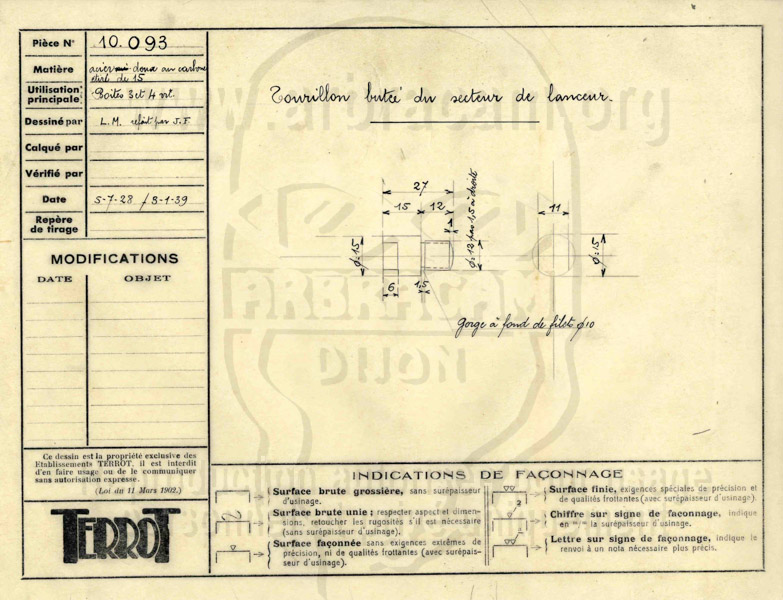 Pièce N° 10.093
Matière acier mi-doux au carbone
étiré de 15
Utilisation principale: Boîtes 3 et 4 vit.
Dessiné par L.M. refait par J.F.
Calqué par
Vérifié par
Date 5-7-28 / 3-1-39
Repère
de tirage
MODIFICATIONS
DATE OBJET
Ce dessin est la propriété exclusive des
Etablissements TERROT, il est interdit
d'en faire usage ou de le communiquer
sans autorisation expresse.
(Loi du 11 Mars 1902.)
TERROT
Tourillon butée du secteur de lanceur.
27
15 12
1
φ:15
φ:12 pas 1,5 à droite
11
φ:15
6 1,5
Gorge à fond de filets φ10
www.arbracam.org
ARBRACAM
DIJON
INDICATIONS DE FAÇONNAGE
Surface brute grossière, sans surépaisseur
d'usinage.
Surface brute unie; respecter aspect et dimen-
sions, retoucher les rugosités s'il est nécessaire
(sans surépaisseur d'usinage).
Surface façonnée sans exigences extrêmes de
précision, ni de qualités frottantes (avec surépais-
seur d'usinage).
Surface finie, exigences spéciales de précision et
de qualités frottantes (avec surépaisseur d'usinage).
Chiffre sur signe de façonnage, indique
en m/m la surépaisseur d'usinage.
Lettre sur signe de façonnage, indique le
renvoi à un nota nécessaire plus précis.